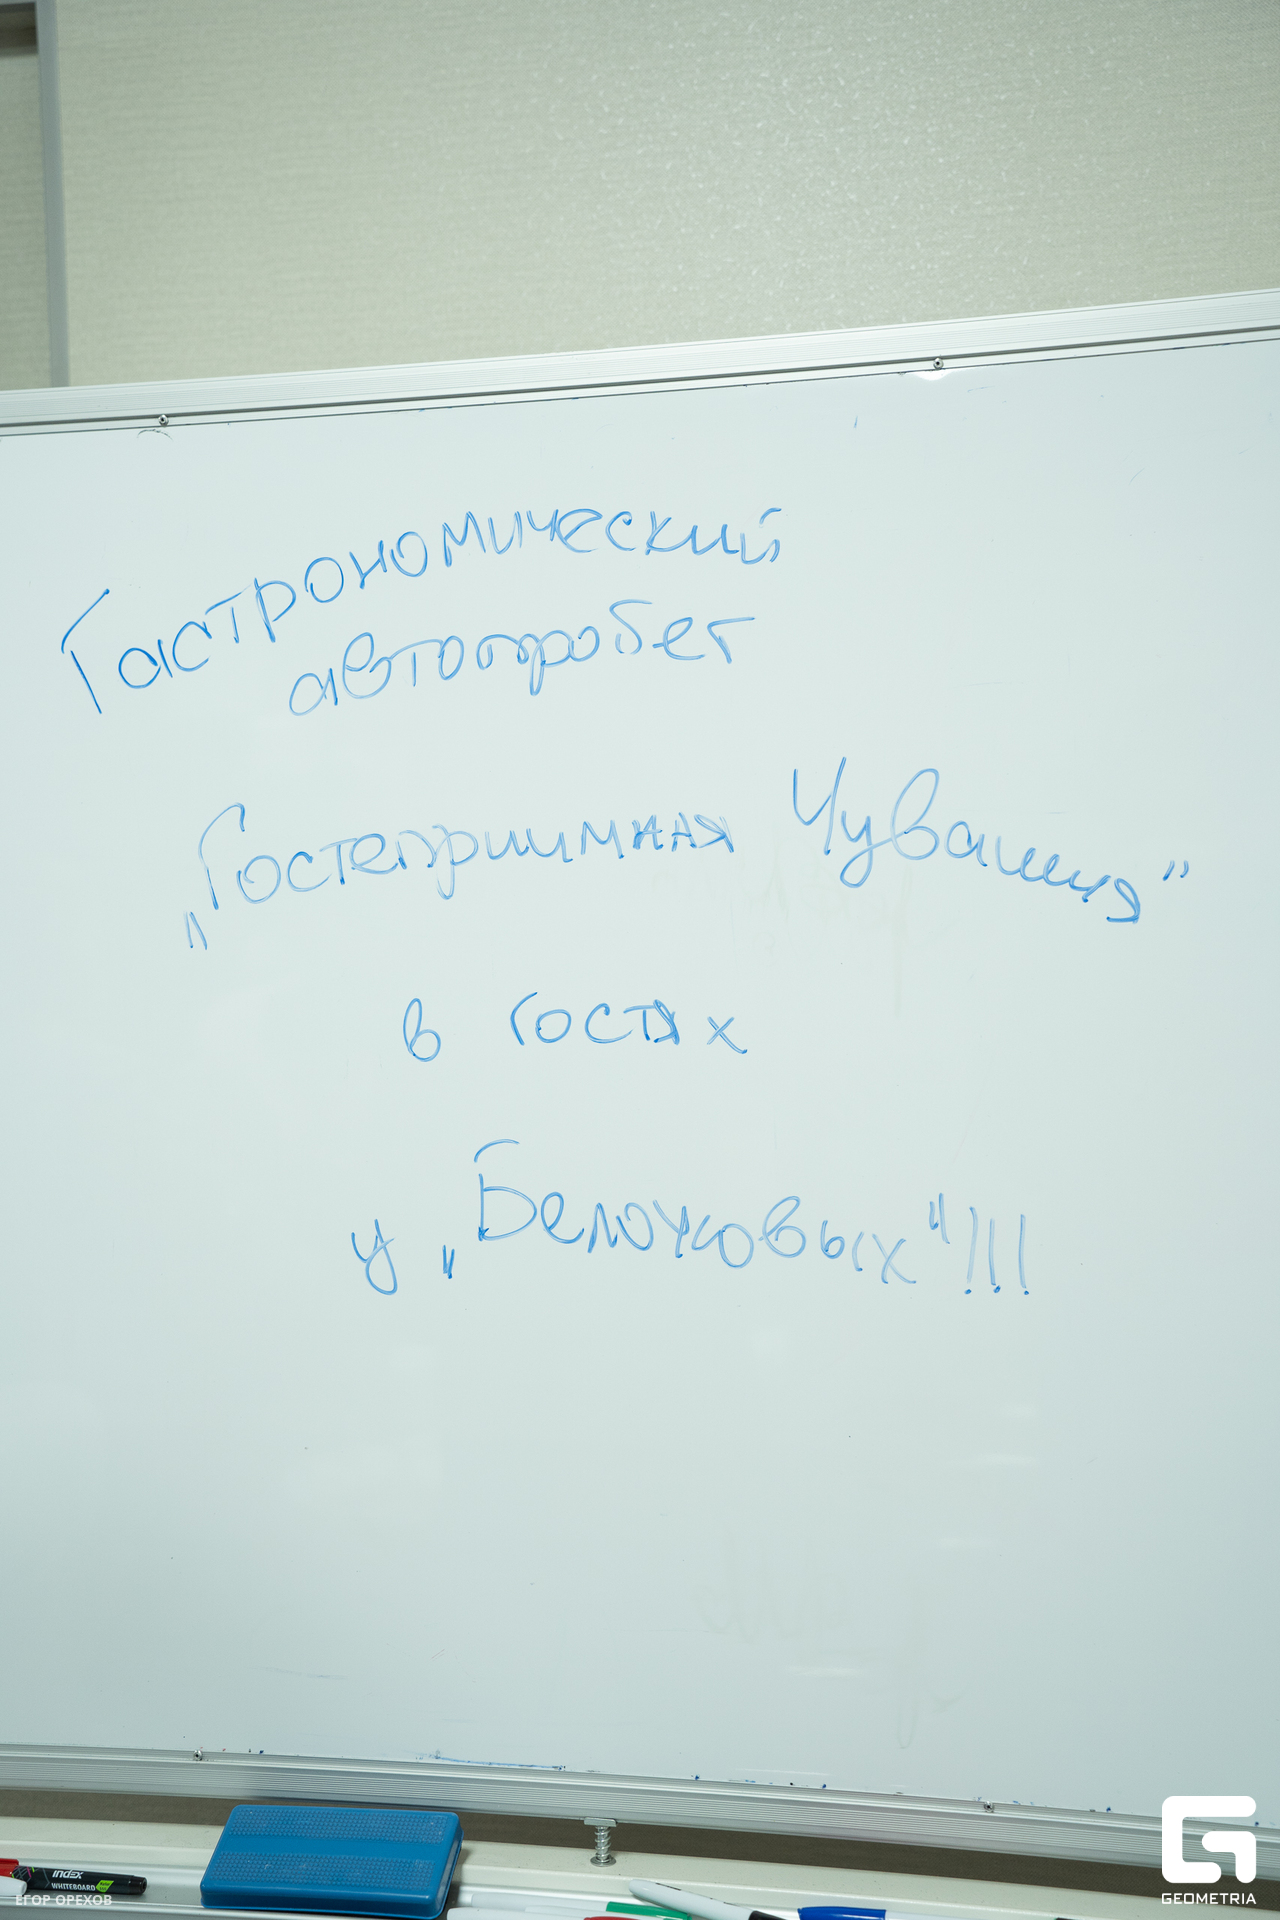 Гастрономический
автопробег
„Гостеприимная Чувашия"
в гостях
у „Белоусовых"!!!
index
WHITEBOARD
ЕГОР ОРЕХОВ
GEOMETRIA